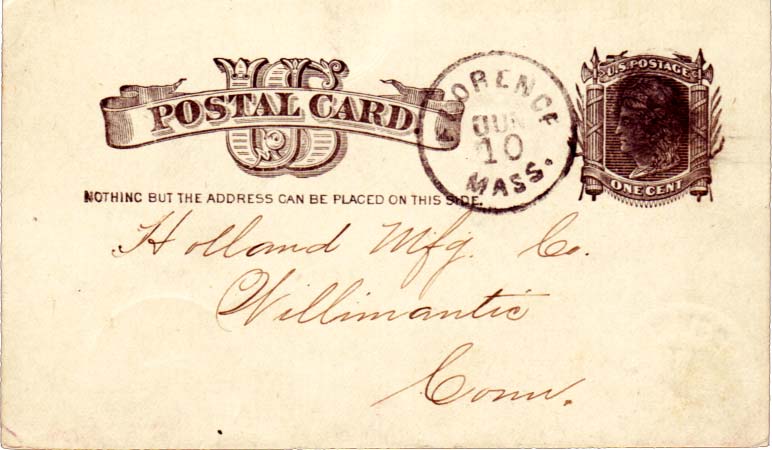 US
POSTAL CARD
FLORENCE
JUN
10
MASS.
U.S. POSTAGE
ONE CENT
NOTHING BUT THE ADDRESS CAN BE PLACED ON THIS SIDE.
Holland Mfg. Co.
Willimantic
Conn.